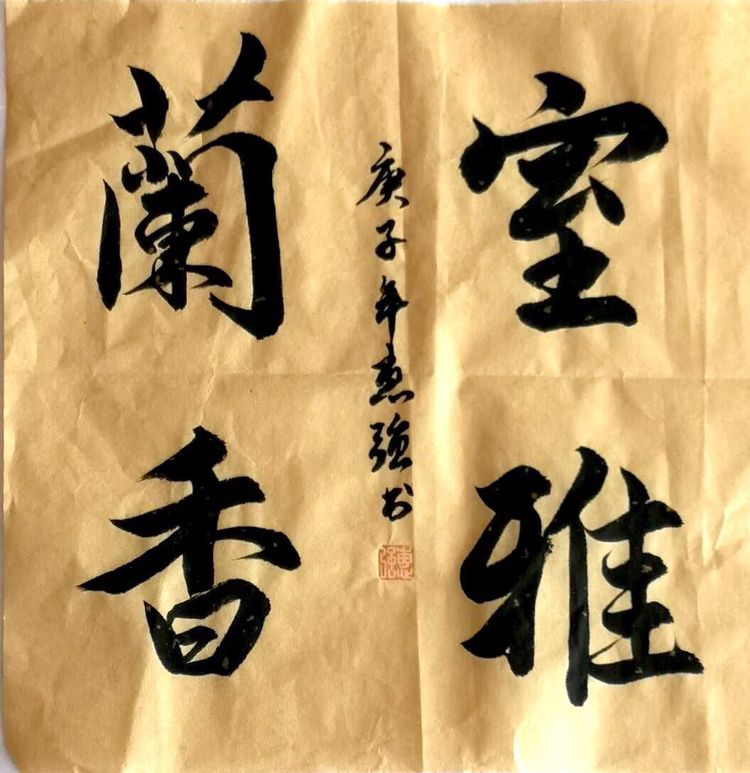 室雅
蘭香
庚子年惠強书